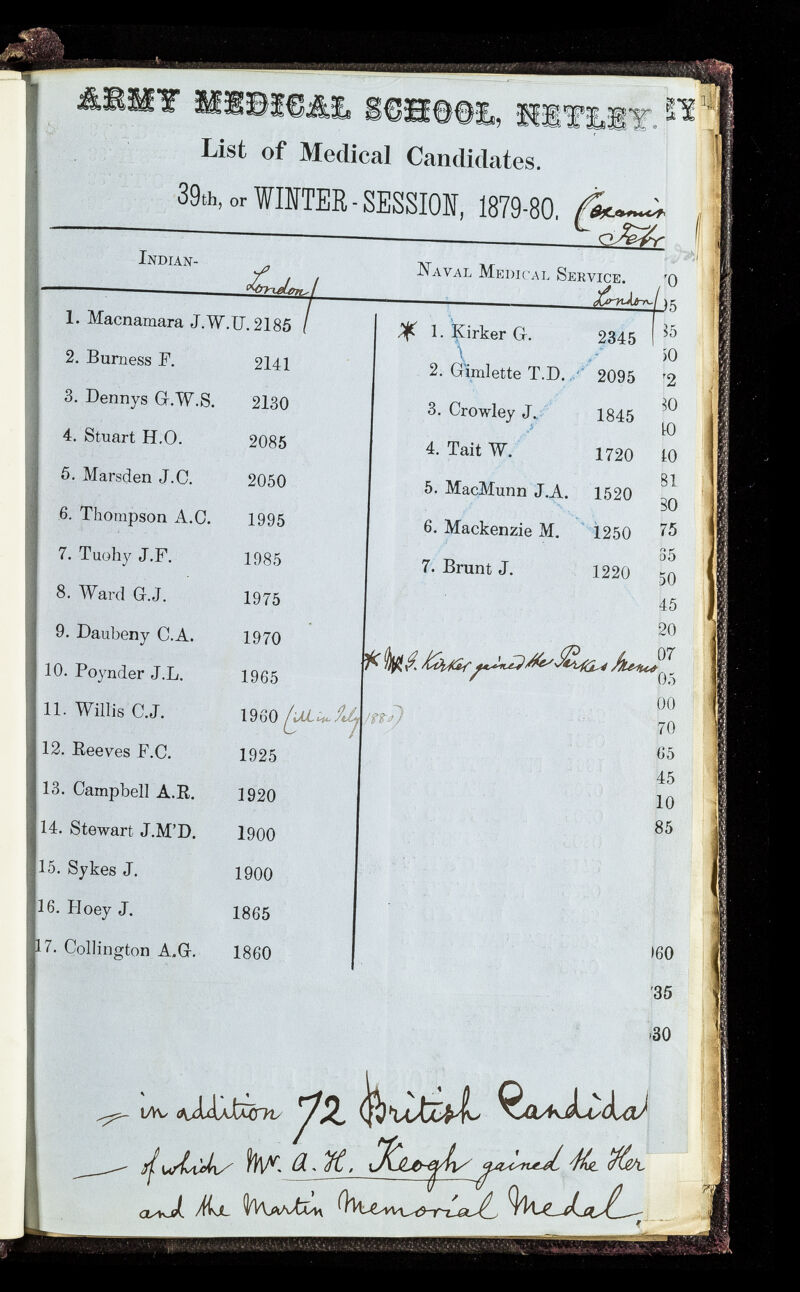 ARMY MEDICAL SCHOOL, NETLEY.
EY
List of Medical Candidates.
39th, or WINTER-SESSION, 1879-80. (examin
Febr
INDIAN-
London
1. Macnamara J.W.U. 2185
2. Burness F. 2141
3. Dennys G.W.S. 2130
4. Stuart H.O. 2085
5. Marsden J.C. 2050
6. Thompson A.C. 1995
7. Tuohy J.F. 1985
8. Ward G.J. 1975
9. Daubeny C.A. 1970
10. Poynder J.L. 1965
11. Willis C.J. 1960 (ill in July 1880)
12. Reeves F.C. 1925
13. Campbell A.R. 1920
14. Stewart J.M'D. 1900
15. Sykes J. 1900
16. Hoey J. 1865
17. Collington A.G. 1860
NAVAL MEDICAL SERVICE.
London
* 1. Kirker G. 2345
2. Gimlette T.D. 2095
3. Crowley J. 1845
4. Tait W. 1720
5. MacMunn J.A. 1520
6. Mackenzie M. 1250
7. Brunt J. 1220
* Mr G. Kirker gained the Parkes Memo
= in addition 72 British Candida
— of which Mr. A. H. Keogh gained the Her
and the Martin Memorial Medal.
70
95
85
50
72
30
40
40
81
80
75
65
50
45
20
07
05
00
70
65
45
10
85
60
35
30